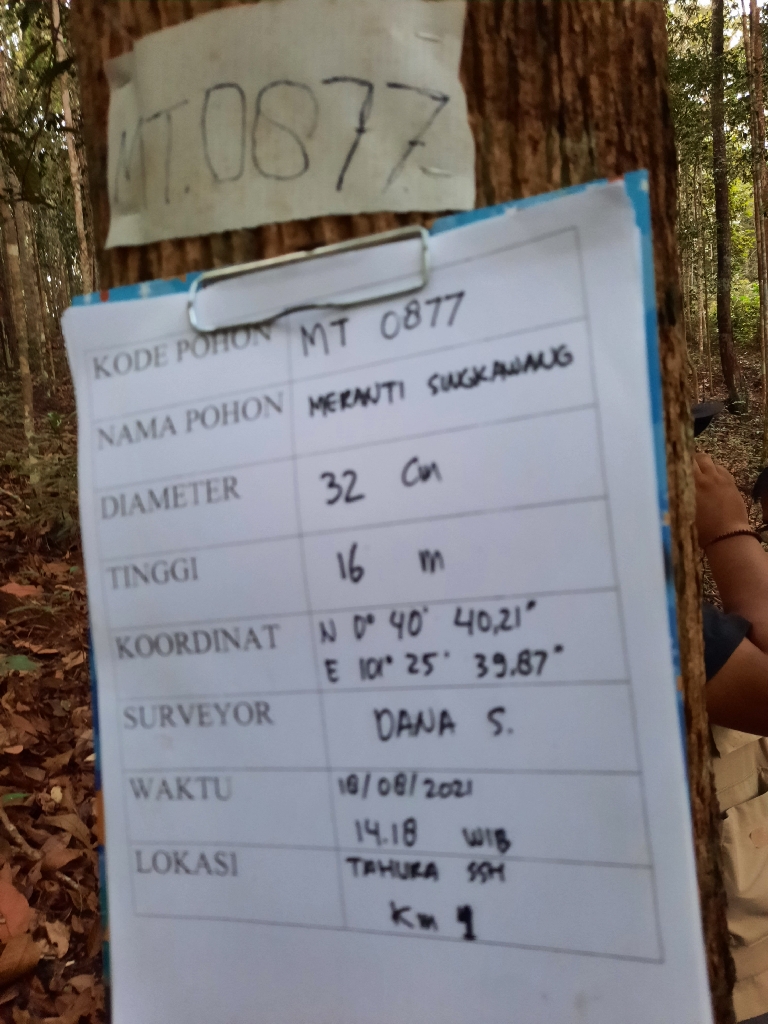 MT.0877
KODE POHON MT 0877
NAMA POHON MERANTI SINGKAWANG
DIAMETER 32 Cm
TINGGI 16 m
KOORDINAT N 0° 40' 40,21"
E 101° 25' 39.87"
SURVEYOR DANA S.
WAKTU 18/08/2021
14.18 WIB
LOKASI TAHURA SSH
Km 1